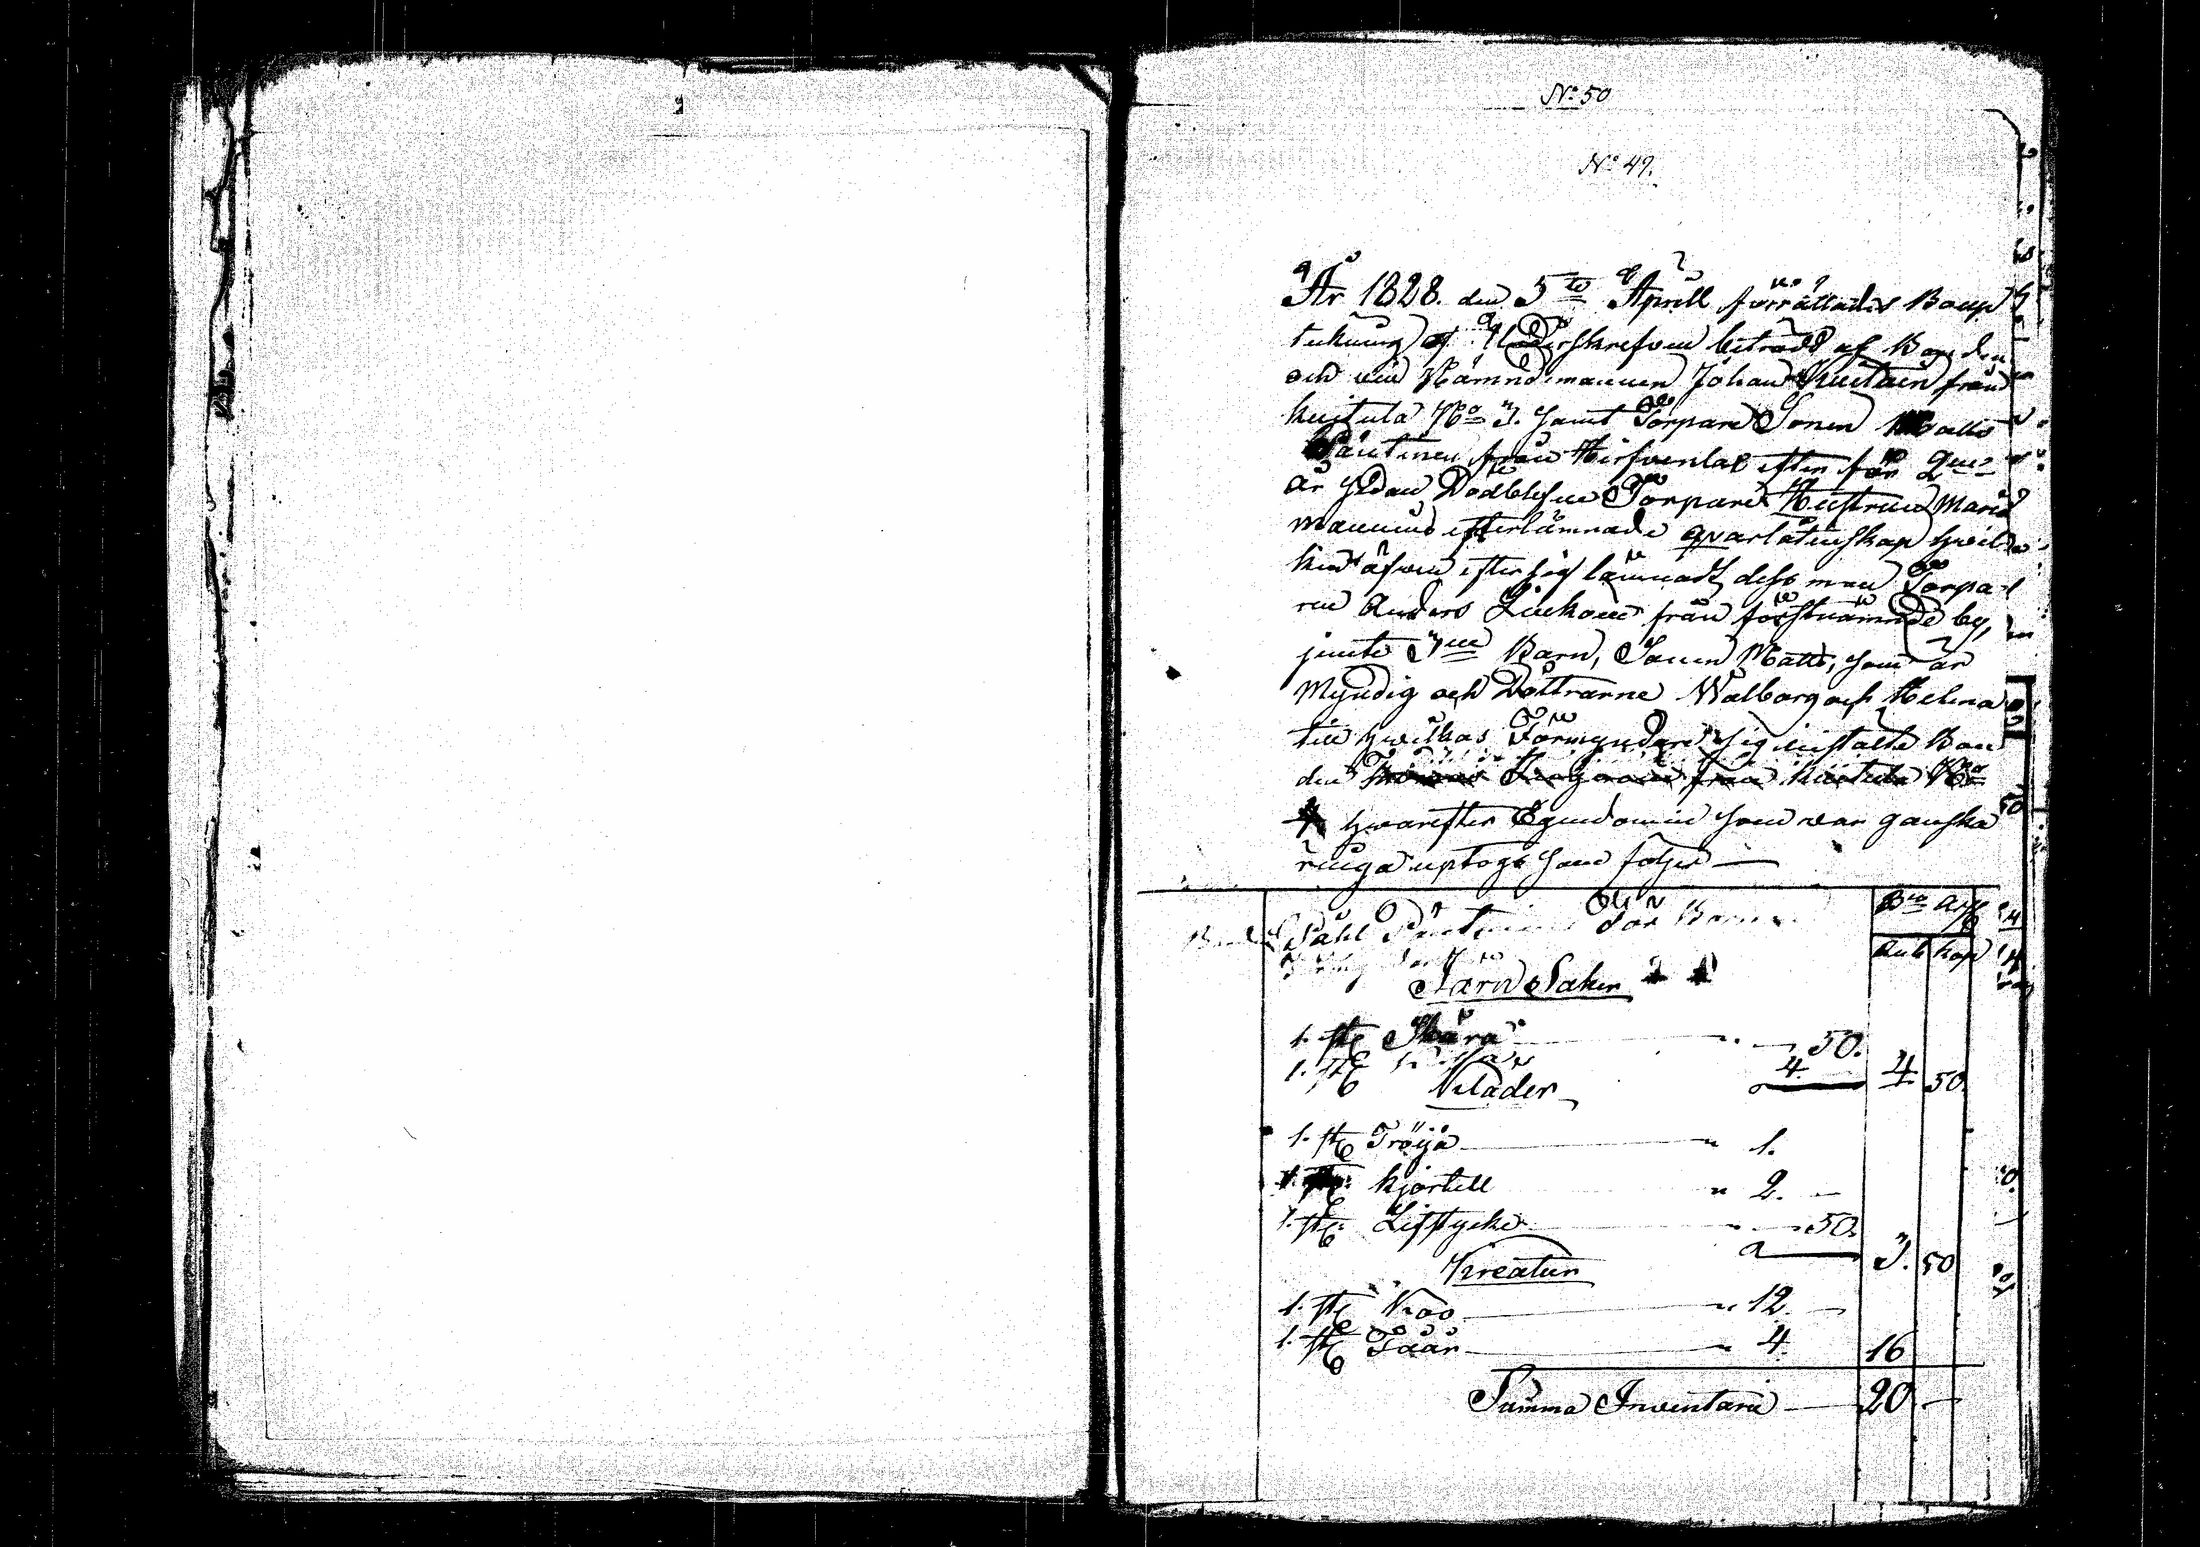 No 50
No 49.
År 1828. den 5te Aprill förrättades Boup
tekning af Underskrefven biträdd af Bonden
och Nämndemannen Johan från
Kuitula No 3. samt Torpare Sonen Matts
Päntinen från Hirfvenlax efter för 2ne
år sedan Dödblefne Torpare Hustrun Maria
efterlämnade qvarlåtenskap hvilken
äfven efter sig lämnadt dess man Torpa-
ren Anders Liukoin från förstnämnde by,
jemte 3ne Barn, Sonen Matts, som är
Myndig och Döttrarne Walborg och Helena
till hvilkas Förmyndare sig instälte Bon
den från Kuitula No
4 hvarefter Egendomen som var ganska
ringa uptogs som följer —
Påhl Päntinen För
Bco Ass
Rub Kop
Järn Saker
1. st Skära — 50.
1. st 4. 4 50.
Kläder
1. st Tröija — " 1.
1. st kjortell " 2. —
1. st Lifstycke " — 50.
3. 50
Kreatur
1. st Koo — " 12. —
1. st Fåår — " 4. 16
Summa Inventarii — 20 —